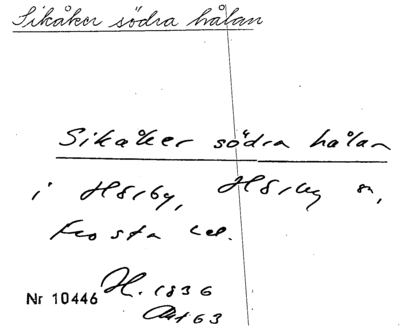 Sikåker södra hålan
Sikåker södra hålan
i Hörby, Hörby sn,
Frosta hd.
Nr 10446 H. 1836
Akt 63